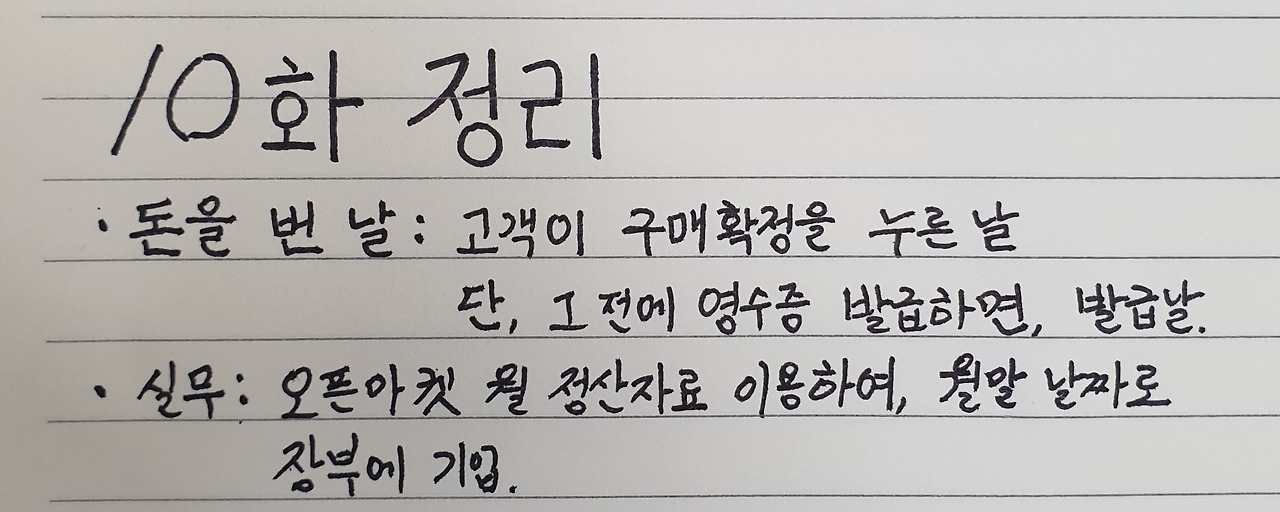 10화 정리
· 돈을 번 날: 고객이 구매확정을 누른 날
단, 그 전에 영수증 발급하면, 발급날.
· 실무: 오픈마켓 월 정산자료 이용하여, 월말 날짜로
장부에 기입.